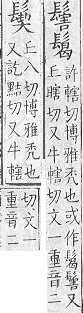 許轄切博雅禿也或作又
丘瞎切又牛轄切文二重音二
丘八切博雅禿也
又訖黠切又牛轄
切文一
重音二